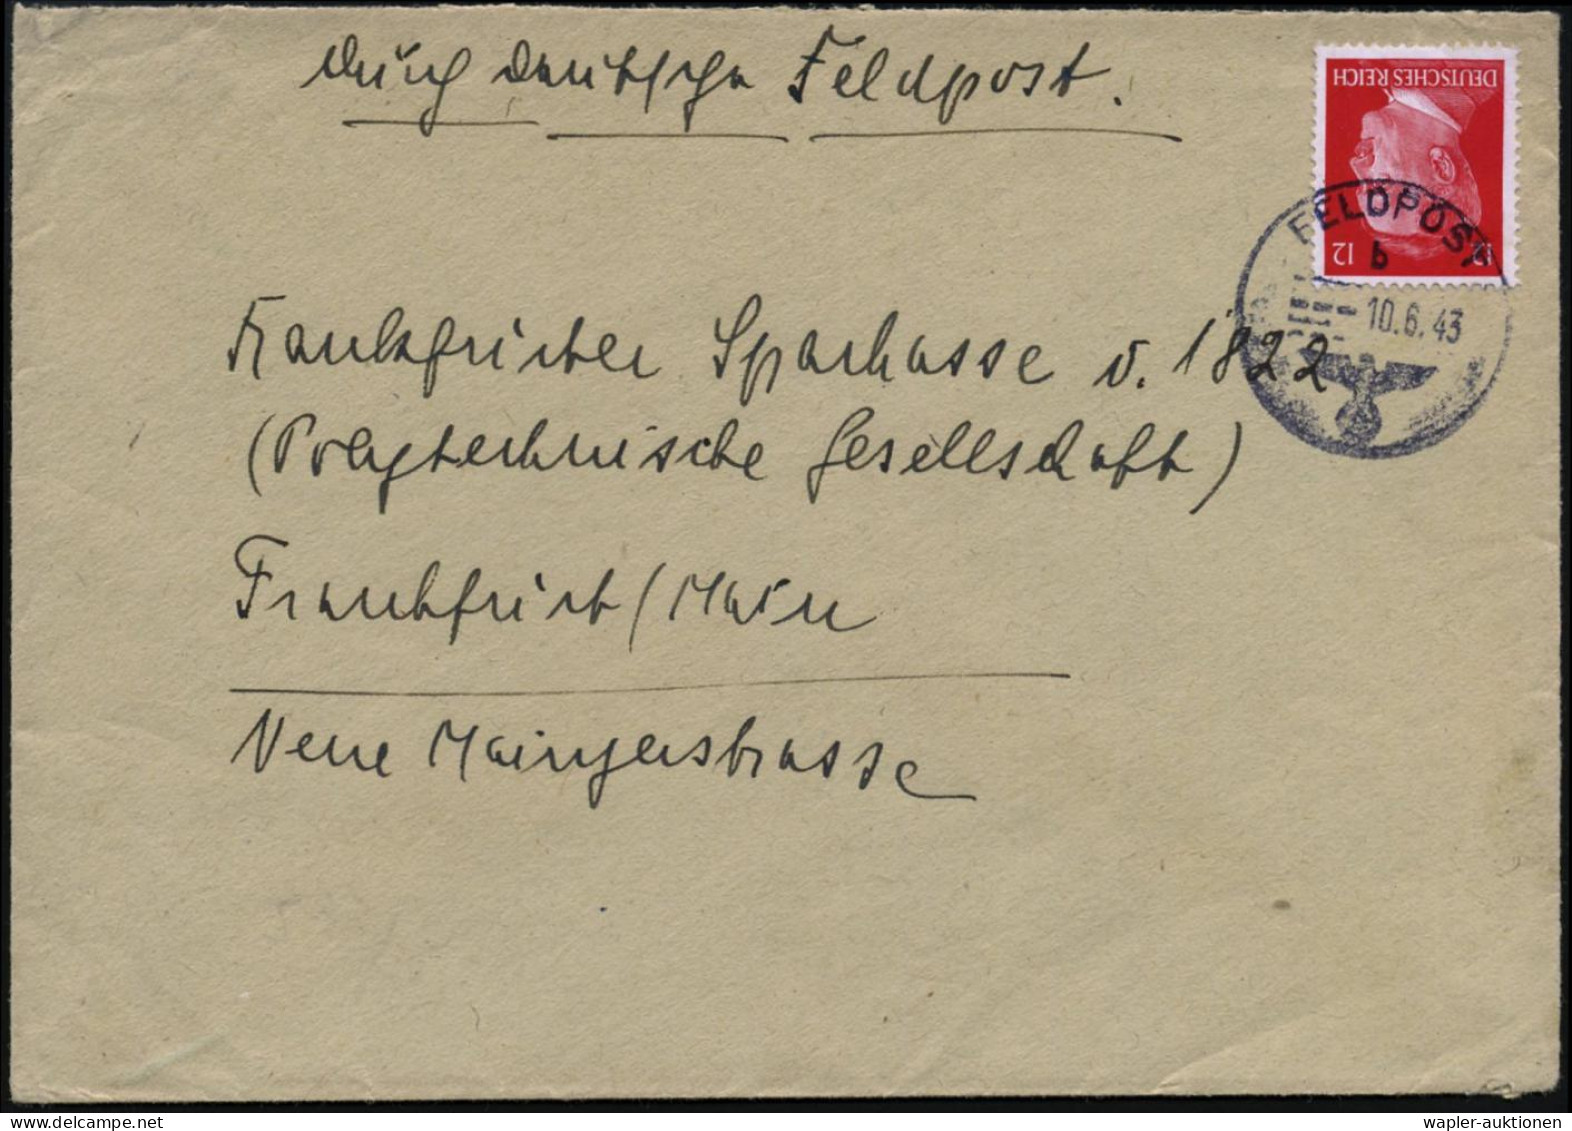 Durch deutsche Feldpost.
DEUTSCHES REICH
12 12
FELDPOST
b
10.6.43
Frankfurter Sparkasse v. 1822
(Polytechnische Gesellschaft)
Frankfurt/Main
Neue Mainzerstrasse
wapler-auktionen